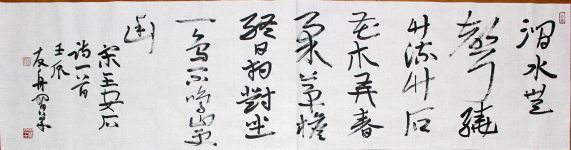 澗水無
聲繞
竹流竹西
花木弄春
柔茅檐
終日相對坐
一鳥不鳴山更
幽
宋王安石
詩一首
壬辰
友舟